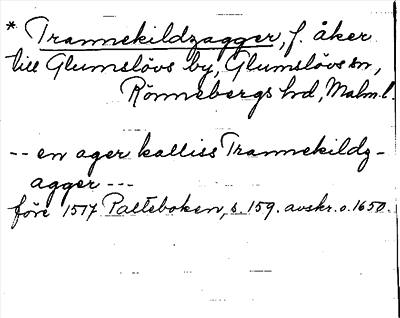 * Trannekildzagger, f. åker
till Glumslövs by, Glumslövs sn,
Rönnebergs hd, Malm. l.
-- en ager kalliss Trannekildz-
agger ---
före 1517 Palteboken, s. 159. avskr. o. 1650.